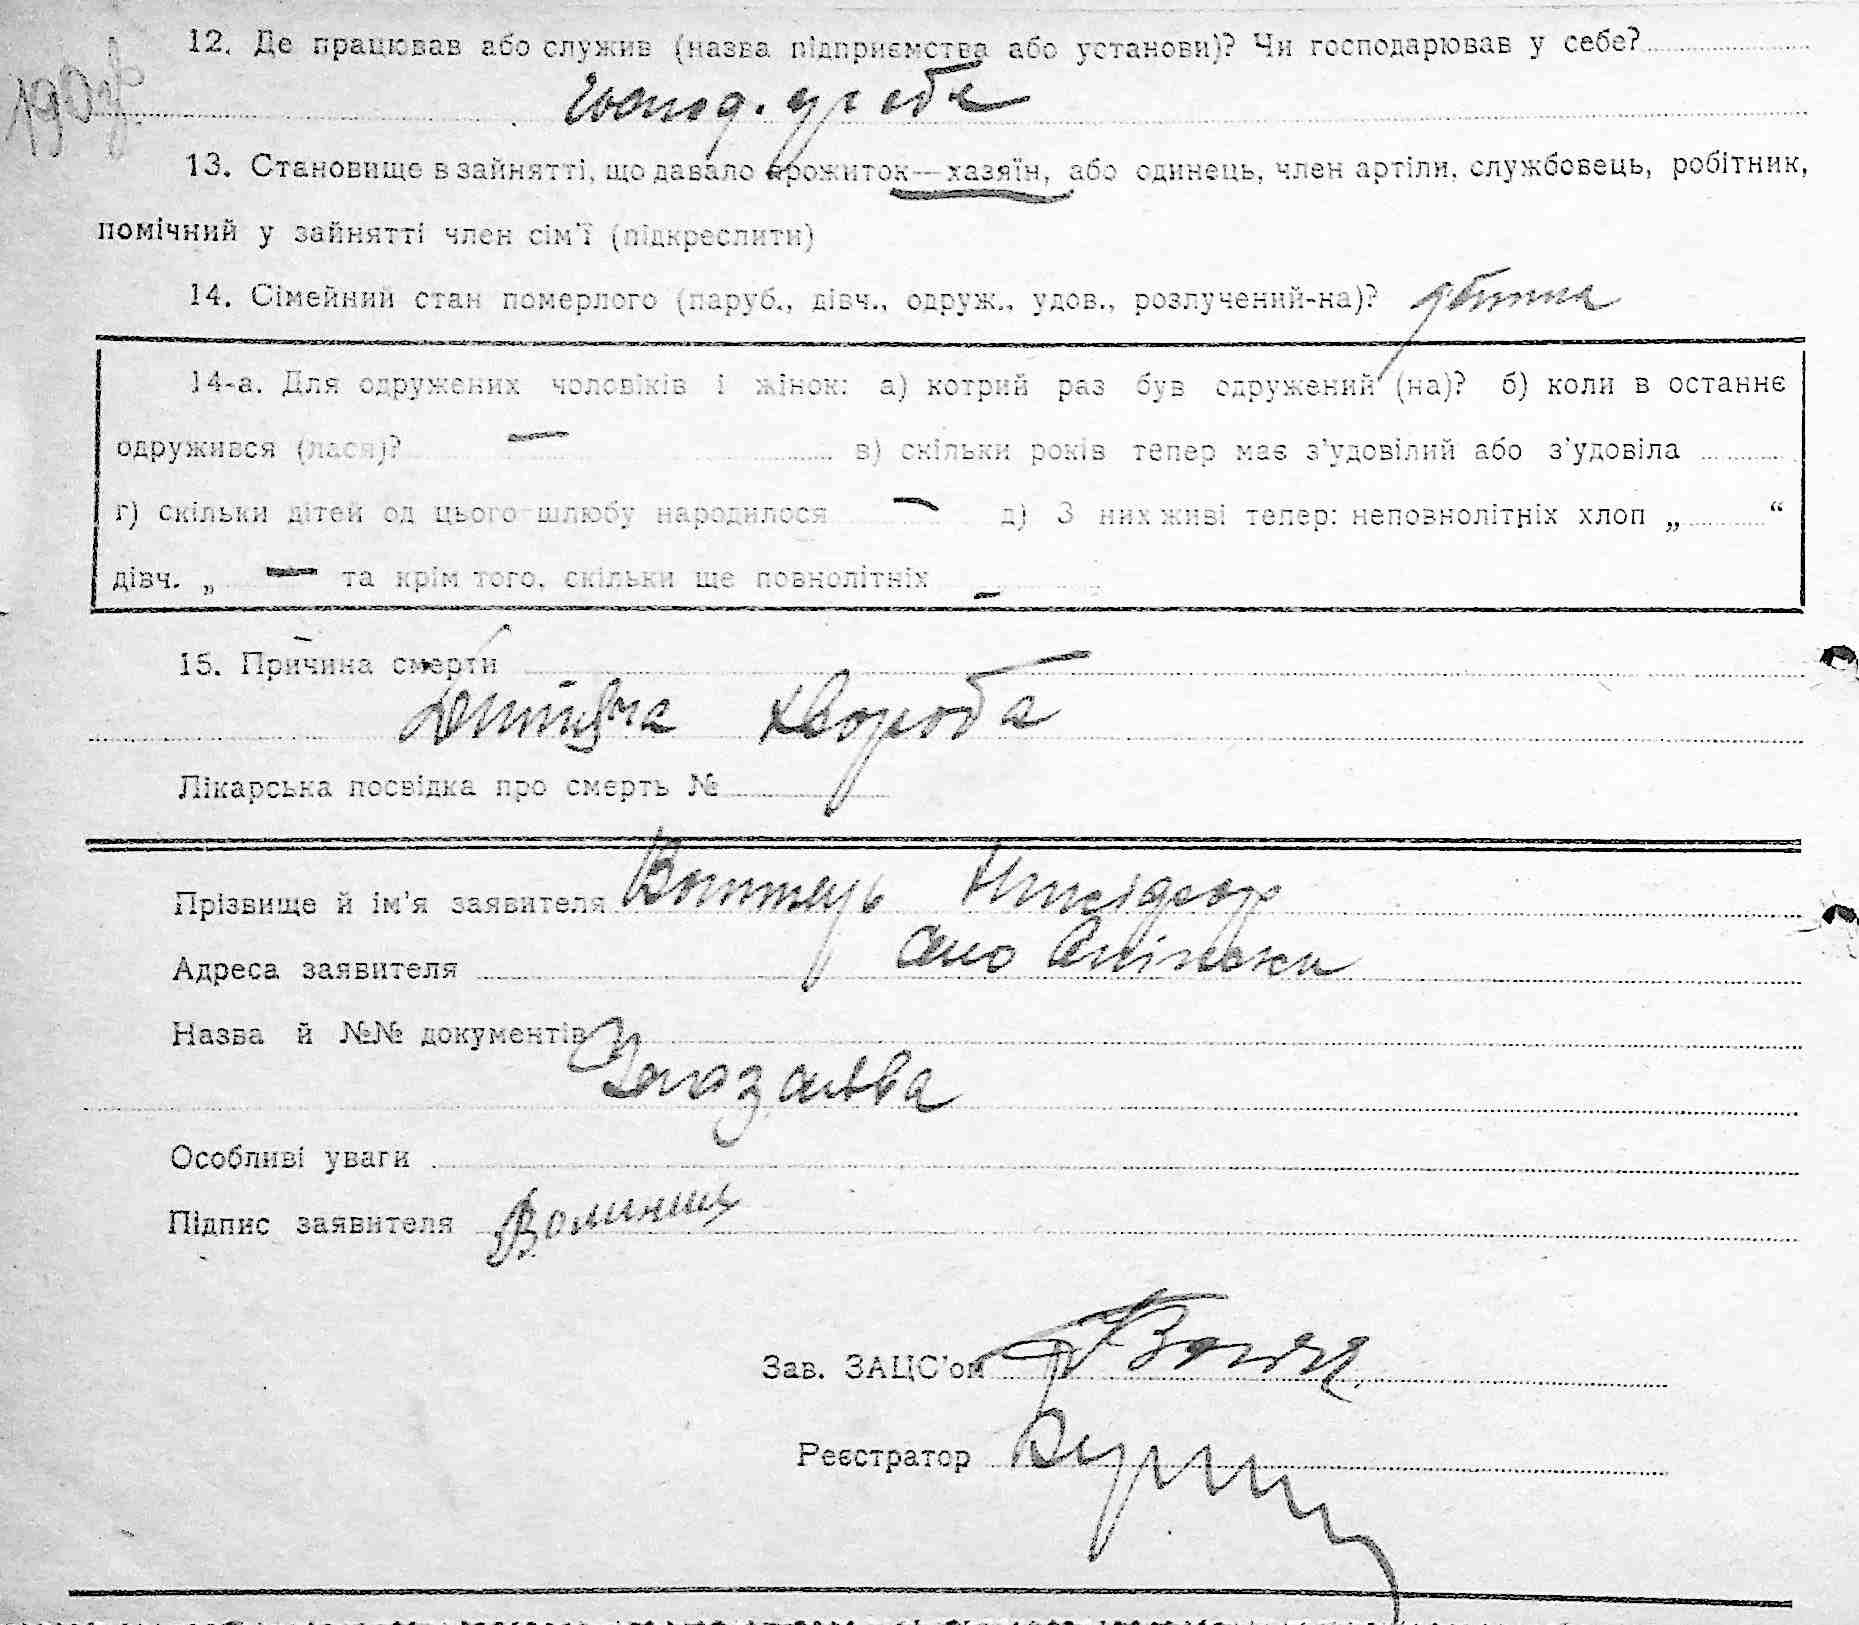 12. Де працював або служив (назва підприємства або установи)? Чи господарював у себе?
господ. у себе
13. Становище в зайнятті, що давало прожиток—хазяїн, або одинець, член артіли, службовець, робітник,
помічний у зайнятті член сім'ї (підкреслити)
14. Сімейний стан померлого (паруб., дівч., одруж., удов., розлучений-на)? дитина
14-а. Для одружених чоловіків і жінок: а) котрий раз був одружений (на)? б) коли в останнє
одружився (лася)? — в) скільки років тепер має з'удовілий або з'удовіла
г) скільки дітей од цього шлюбу народилося — д) З них живі тепер: неповнолітніх хлоп „ “
дівч. „ — та крім того, скільки ще повнолітніх —
15. Причина смерти
Дитяча хвороба
Лікарська посвідка про смерть №
Прізвище й ім'я заявителя
Адреса заявителя село
Назва й №№ документів
Особливі уваги
Підпис заявителя
Зав. ЗАЦС'ом
Реєстратор